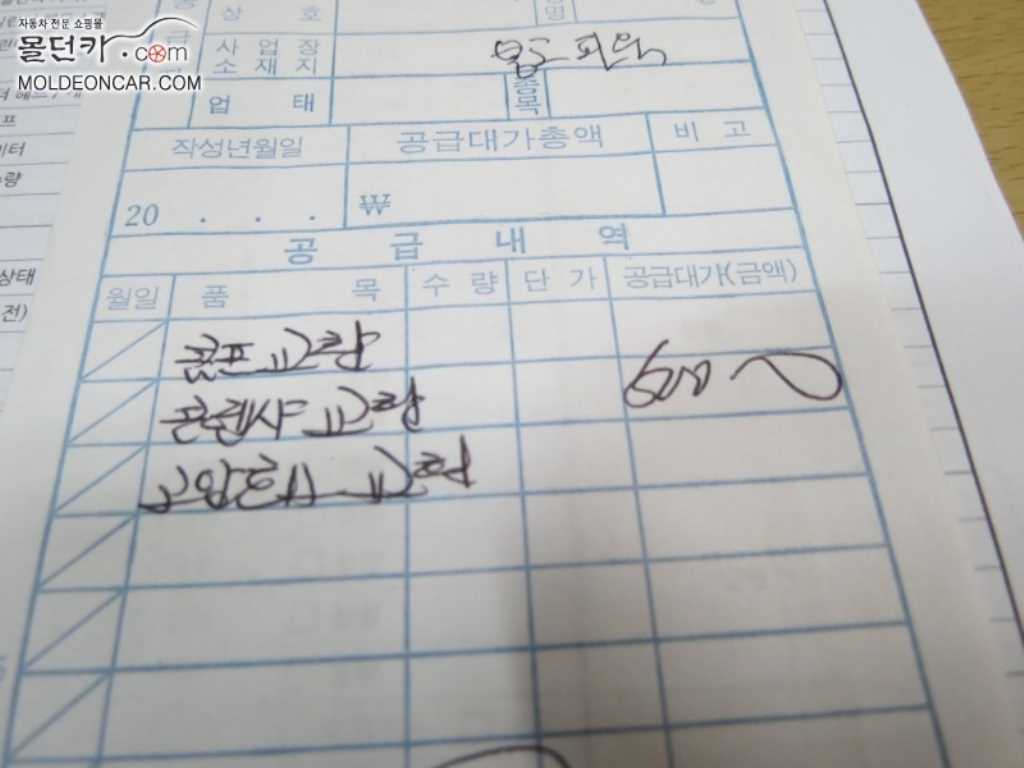 자동차 전문 쇼핑몰
몰던카.com
MOLDEONCAR.COM
상 호
명
사 업 장
소 재 지
업 태
종
목
작성년월일
공급대가총액
비 고
20 . . .
₩
공 급 내 역
월일
품 목
수 량
단 가
공급대가(금액)
콤프 교환
콘덴샤 교환
고압호스 교환
상태
전)